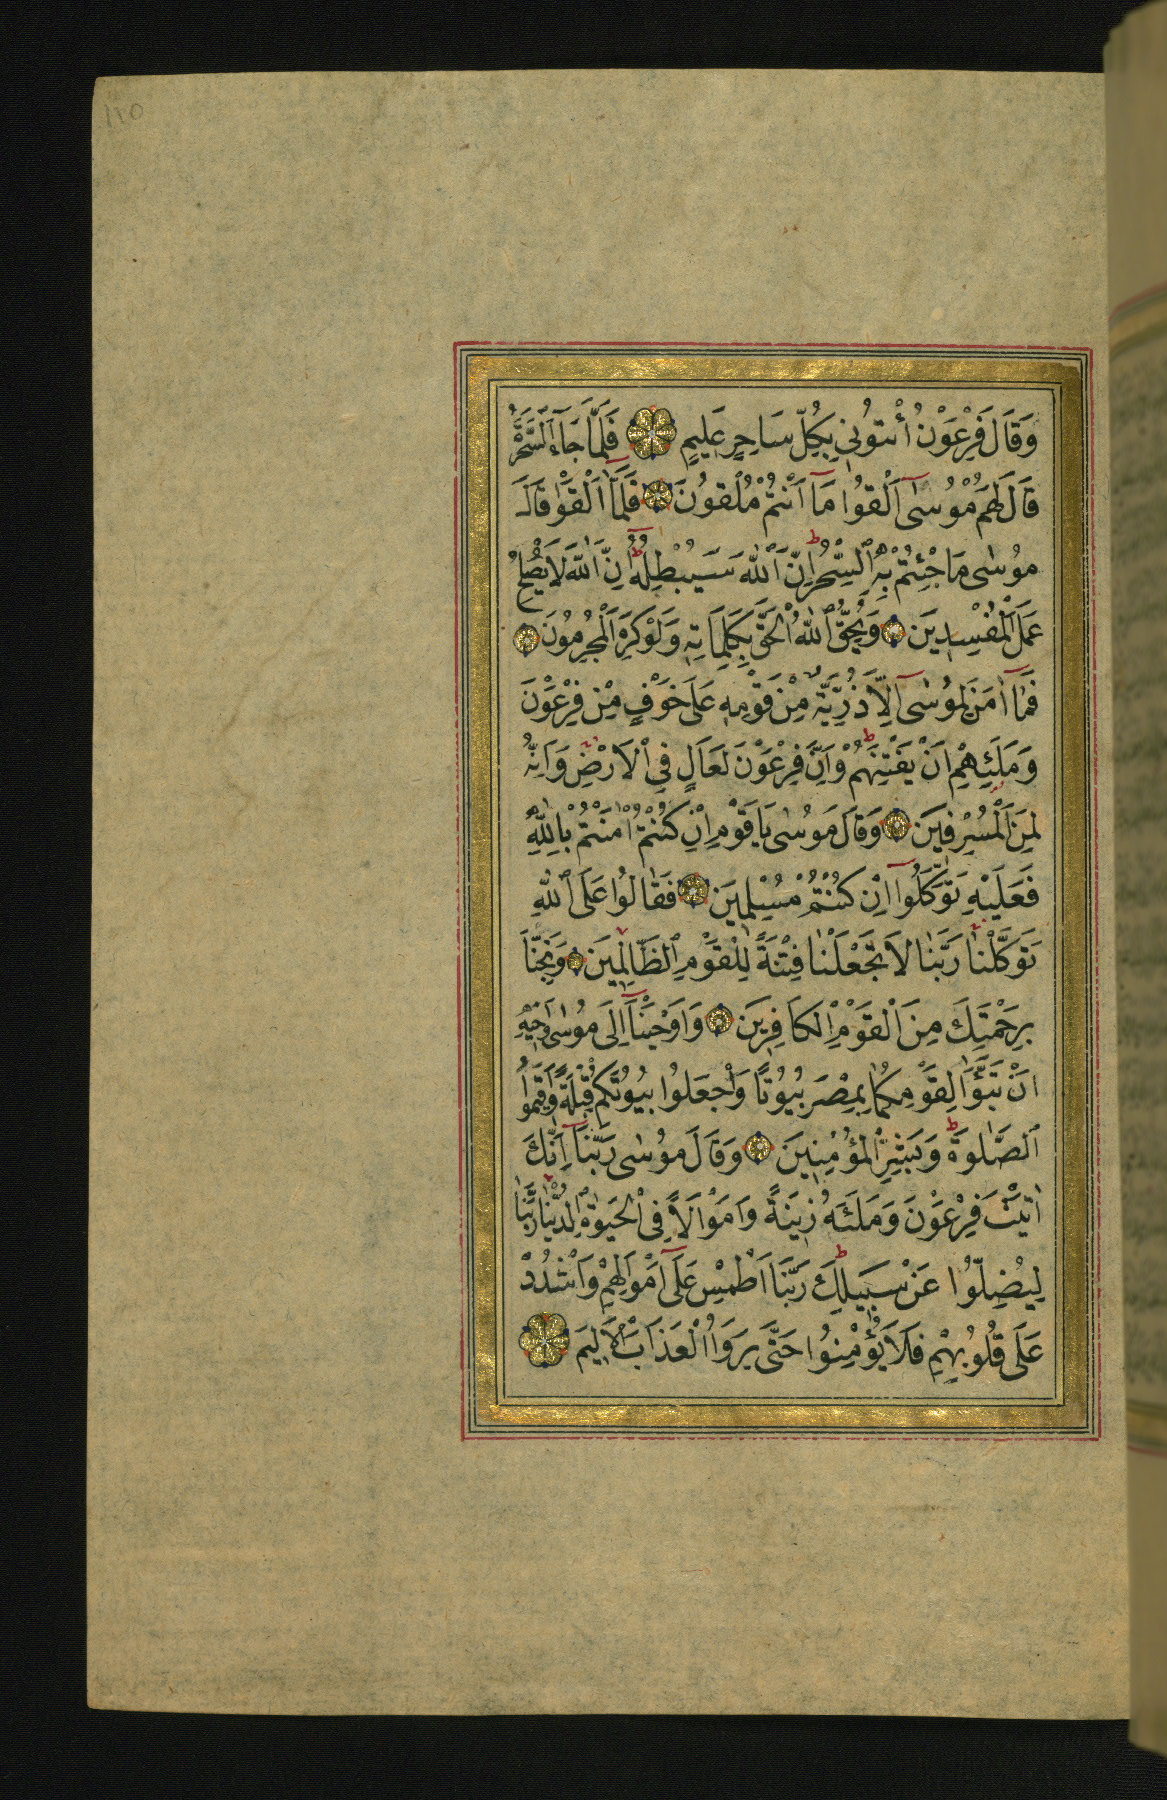 110
وَقَالَ فِرْعَوْنُ أْتُونِي بِكُلِّ سَاحِرٍ عَلِيمٍ فَلَمَّا جَآءَ ٱلسَّحَرَةُ
قَالَ لَهُمْ مُوسٰىٓ اَلْقُوا مَآ اَنْتُمْ مُلْقُونَ فَلَمَّآ اَلْقَوْا قَالَ
مُوسٰى مَا جِئْتُمْ بِهِ ٱلسِّحْرُ اِنَّ ٱللّٰهَ سَيُبْطِلُهُٓ اِنَّ اللّٰهَ لَا يُصْلِحُ
عَمَلَ الْمُفْسِدِينَ وَيُحِقُّ ٱللّٰهُ الْحَقَّ بِكَلِمَاتِهِ وَلَوْ كَرِهَ الْمُجْرِمُونَ
فَمَآ اٰمَنَ لِمُوسٰىٓ اِلَّا ذُرِّيَّةٌ مِنْ قَوْمِهِ عَلَى خَوْفٍ مِنْ فِرْعَوْنَ
وَمَلَئِهِمْ اَنْ يَفْتِنَهُمْ وَاِنَّ فِرْعَوْنَ لَعَالٍ فِي الْاَرْضِ وَاِنَّهُ
لَمِنَ الْمُسْرِفِينَ وَقَالَ مُوسٰى يَا قَوْمِ اِنْ كُنْتُمْ اٰمَنْتُمْ بِاللّٰهِ
فَعَلَيْهِ تَوَكَّلُوٓا اِنْ كُنْتُمْ مُسْلِمِينَ فَقَالُوا عَلَى ٱللّٰهِ
تَوَكَّلْنَا رَبَّنَا لَا تَجْعَلْنَا فِتْنَةً لِلْقَوْمِ ٱلظَّالِمِينَ وَنَجِّنَا
بِرَحْمَتِكَ مِنَ الْقَوْمِ الْكَافِرِينَ وَاَوْحَيْنَآ اِلَى مُوسٰى وَاَخِيهِ
اَنْ تَبَوَّاٰ لِقَوْمِكُمَا بِمِصْرَ بُيُوتًا وَاجْعَلُوا بُيُوتَكُمْ قِبْلَةً وَاَقِيمُوا
ٱلصَّلٰوةَ وَبَشِّرِ الْمُؤْمِنِينَ وَقَالَ مُوسٰى رَبَّنَآ اِنَّكَ
اٰتَيْتَ فِرْعَوْنَ وَمَلَئَهُ زِينَةً وَاَمْوَالًا فِي الْحَيٰوةِ ٱلدُّنْيَا رَبَّنَا
لِيُضِلُّوا عَنْ سَبِيلِكَ رَبَّنَا اطْمِسْ عَلَىٓ اَمْوَالِهِمْ وَاشْدُدْ
عَلَى قُلُوبِهِمْ فَلَا يُؤْمِنُوا حَتَّى يَرَوُا الْعَذَابَ الْاَلِيمَ